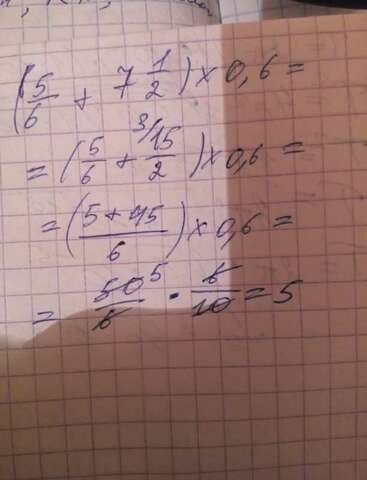 (5/6 + 7 1/2) × 0,6 =
= (5/6 + 3/15/2) × 0,6 =
= ((5 + 45)/6) × 0,6 =
= 50/6 5 · 6/10 = 5